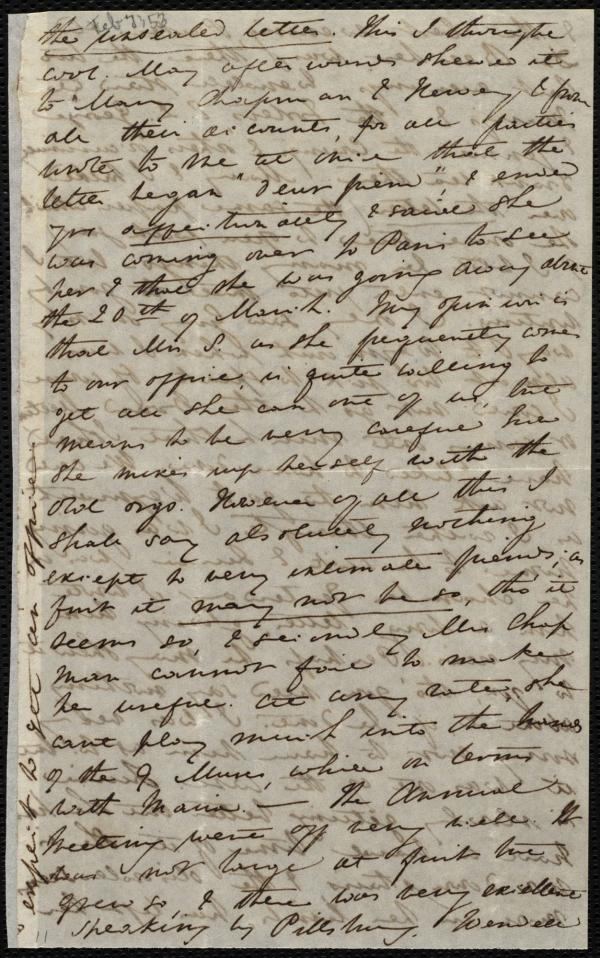 Feb 7, 53
the unsealed letter. This I thought
cool. May afterwards shewed it
to Mary Chapman & Hervey, & from
all their accounts, for all parties
wrote to me at once that the
letter began "Dear friend", & ended
yrs affectionately & said she
was coming over to Paris to see
her & that she was going away about
the 20th of March. My opinion is
that Mrs S. as she frequently comes
to our office, is quite willing to
get all she can out of us, but
means to be very careful how
she mixes up herself with the
old orgs. However of all this I
shall say absolutely nothing
except to very intimate friends; as
first it may not be so, tho' it
seems so, & secondly Mrs Chap
man cannot fail to make
her useful. At any rate, she
cant play much into the hands
of the J Muss, while on terms
with Maria — The Annual
Meeting went off very well. It
was not large at first but
grew so, & there was very excellent
speaking by Pillsbury. Wendell
expect to get an office